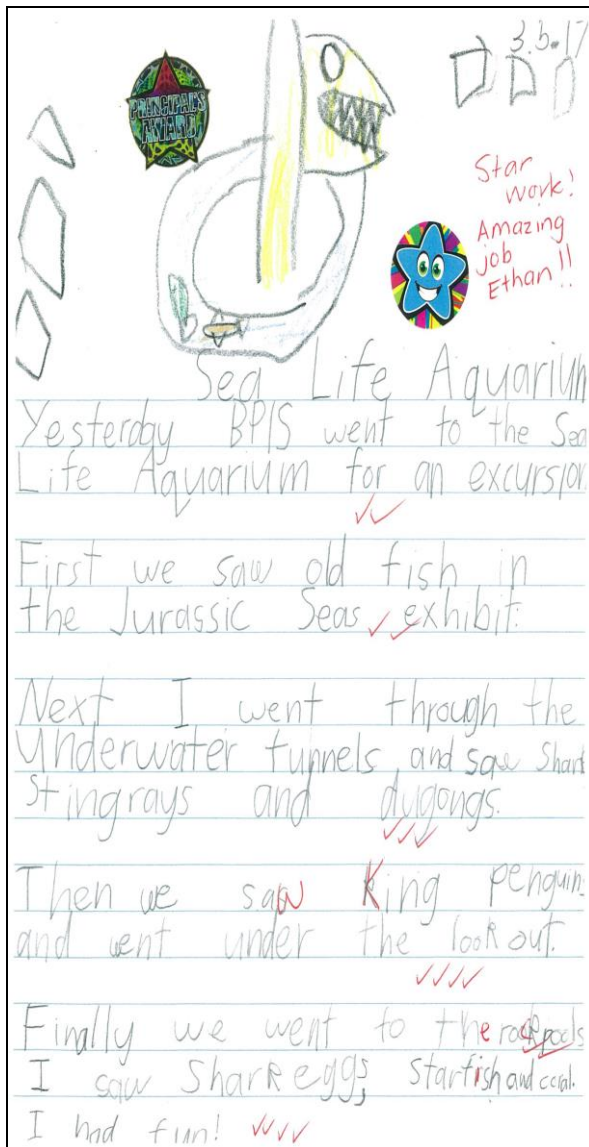 3.5.17
PRINCIPAL'S
AWARD
Star
work!
Amazing
job
Ethan!!
Sea Life Aquarium
Yesterday BPIS went to the Sea
Life Aquarium for an excursion
First we saw old fish in
the Jurassic Seas exhibit.
Next I went through the
Underwater tunnels and saw Shark
Stingrays and dugongs.
Then we saw King penguins
and went under the look out.
Finally we went to the rockpools
I saw Shark eggs, Starfish and coral.
I had fun!